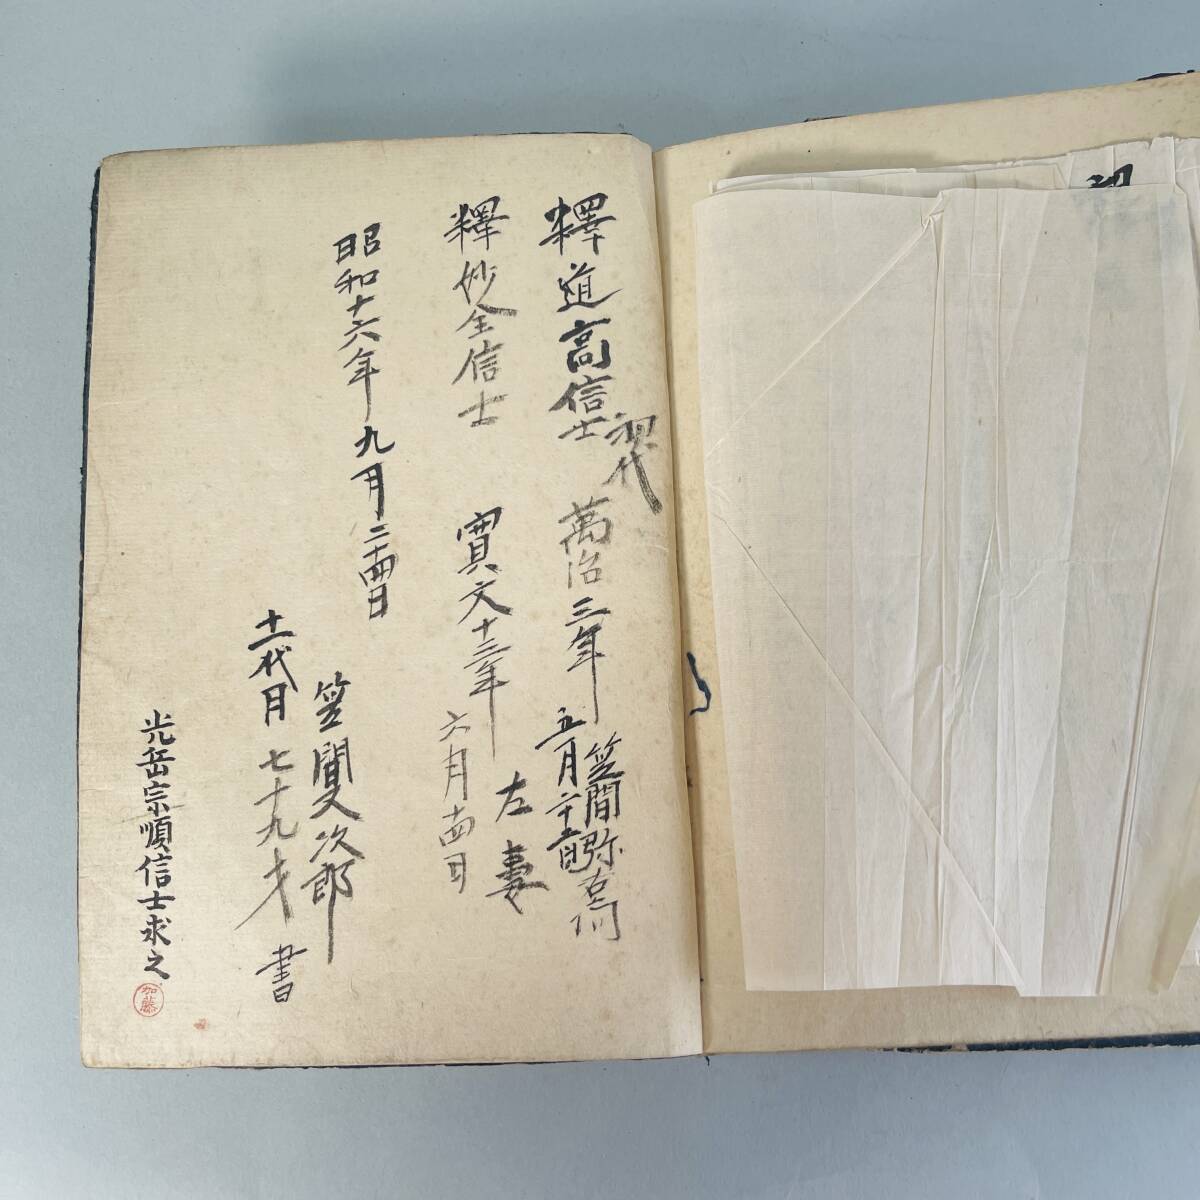 初
釋道高信士 初代 萬治三年 五月二十五日 笠間弥右衛門
釋妙全信士 寛文十三年 六月十四日
左妻
昭和十六年九月二十四日
笠間又次郎
十一代目 七十九才 書
光岳宗順信士求之
加藤